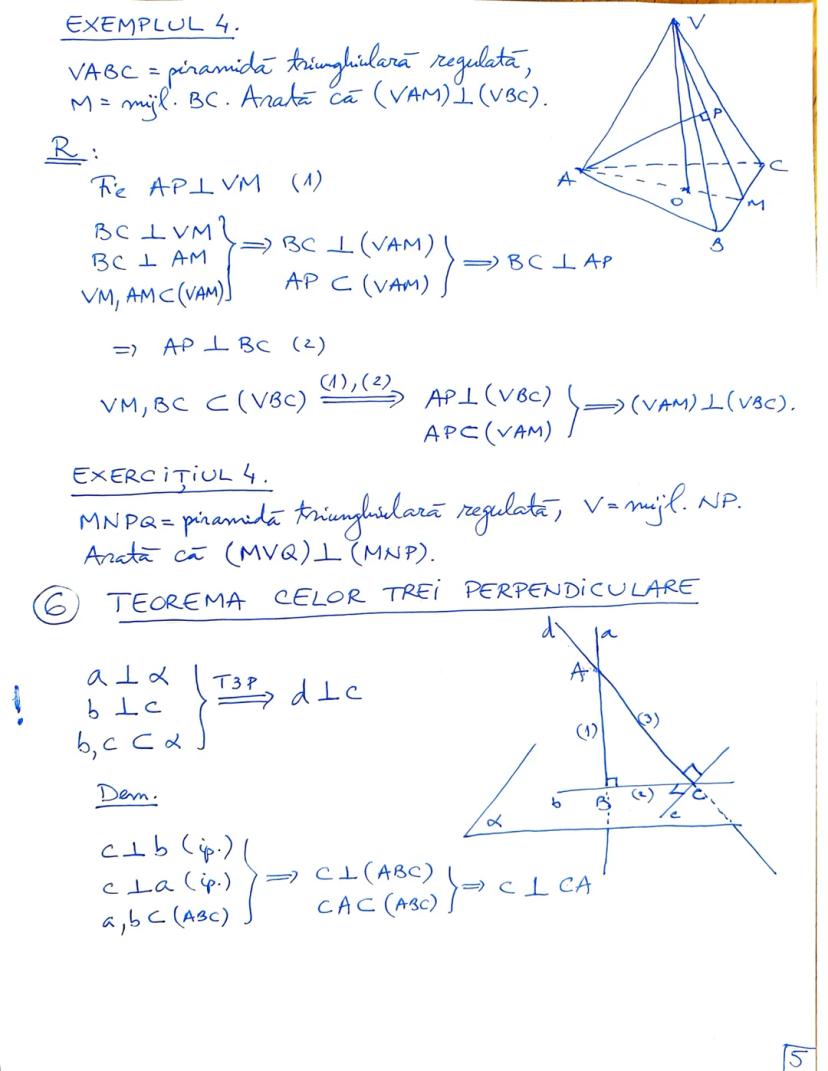 EXEMPLUL 4.
VABC = piramidă triunghiulară regulată,
M = mijl. BC. Arată că (VAM) ⊥ (VBC).
V
P
A
C
O
M
B
R:
Fie AP ⊥ VM (1)
BC ⊥ VM
BC ⊥ AM
VM, AM ⊂ (VAM)
⟹ BC ⊥ (VAM)
AP ⊂ (VAM)
⟹ BC ⊥ AP
⟹ AP ⊥ BC (2)
VM, BC ⊂ (VBC) (1),(2) ⟹ AP ⊥ (VBC)
AP ⊂ (VAM)
⟹ (VAM) ⊥ (VBC).
EXERCIȚIUL 4.
MNPQ = piramidă triunghiulară regulată, V = mijl. NP.
Arată că (MVQ) ⊥ (MNP).
6 TEOREMA CELOR TREI PERPENDICULARE
! a ⊥ α
b ⊥ c
b, c ⊂ α
T3P ⟹ d ⊥ c
d
a
A
(1)
(3)
b
B
(2)
C
c
α
Dem:
c ⊥ b (ip.)
c ⊥ a (ip.)
a, b ⊂ (ABC)
⟹ c ⊥ (ABC)
CA ⊂ (ABC)
⟹ c ⊥ CA
5